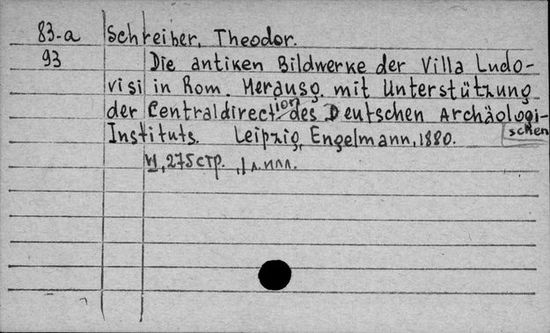 83-a Schreiber, Theodor.
93 Die antiken Bildwerke der Villa Ludo-
visi in Rom. Herausg. mit Unterstützung
der Centraldirection des Deutschen Archäologi-
schen
Instituts. Leipzig, Engelmann, 1880.
VI, 275 стр., 1 л. илл.